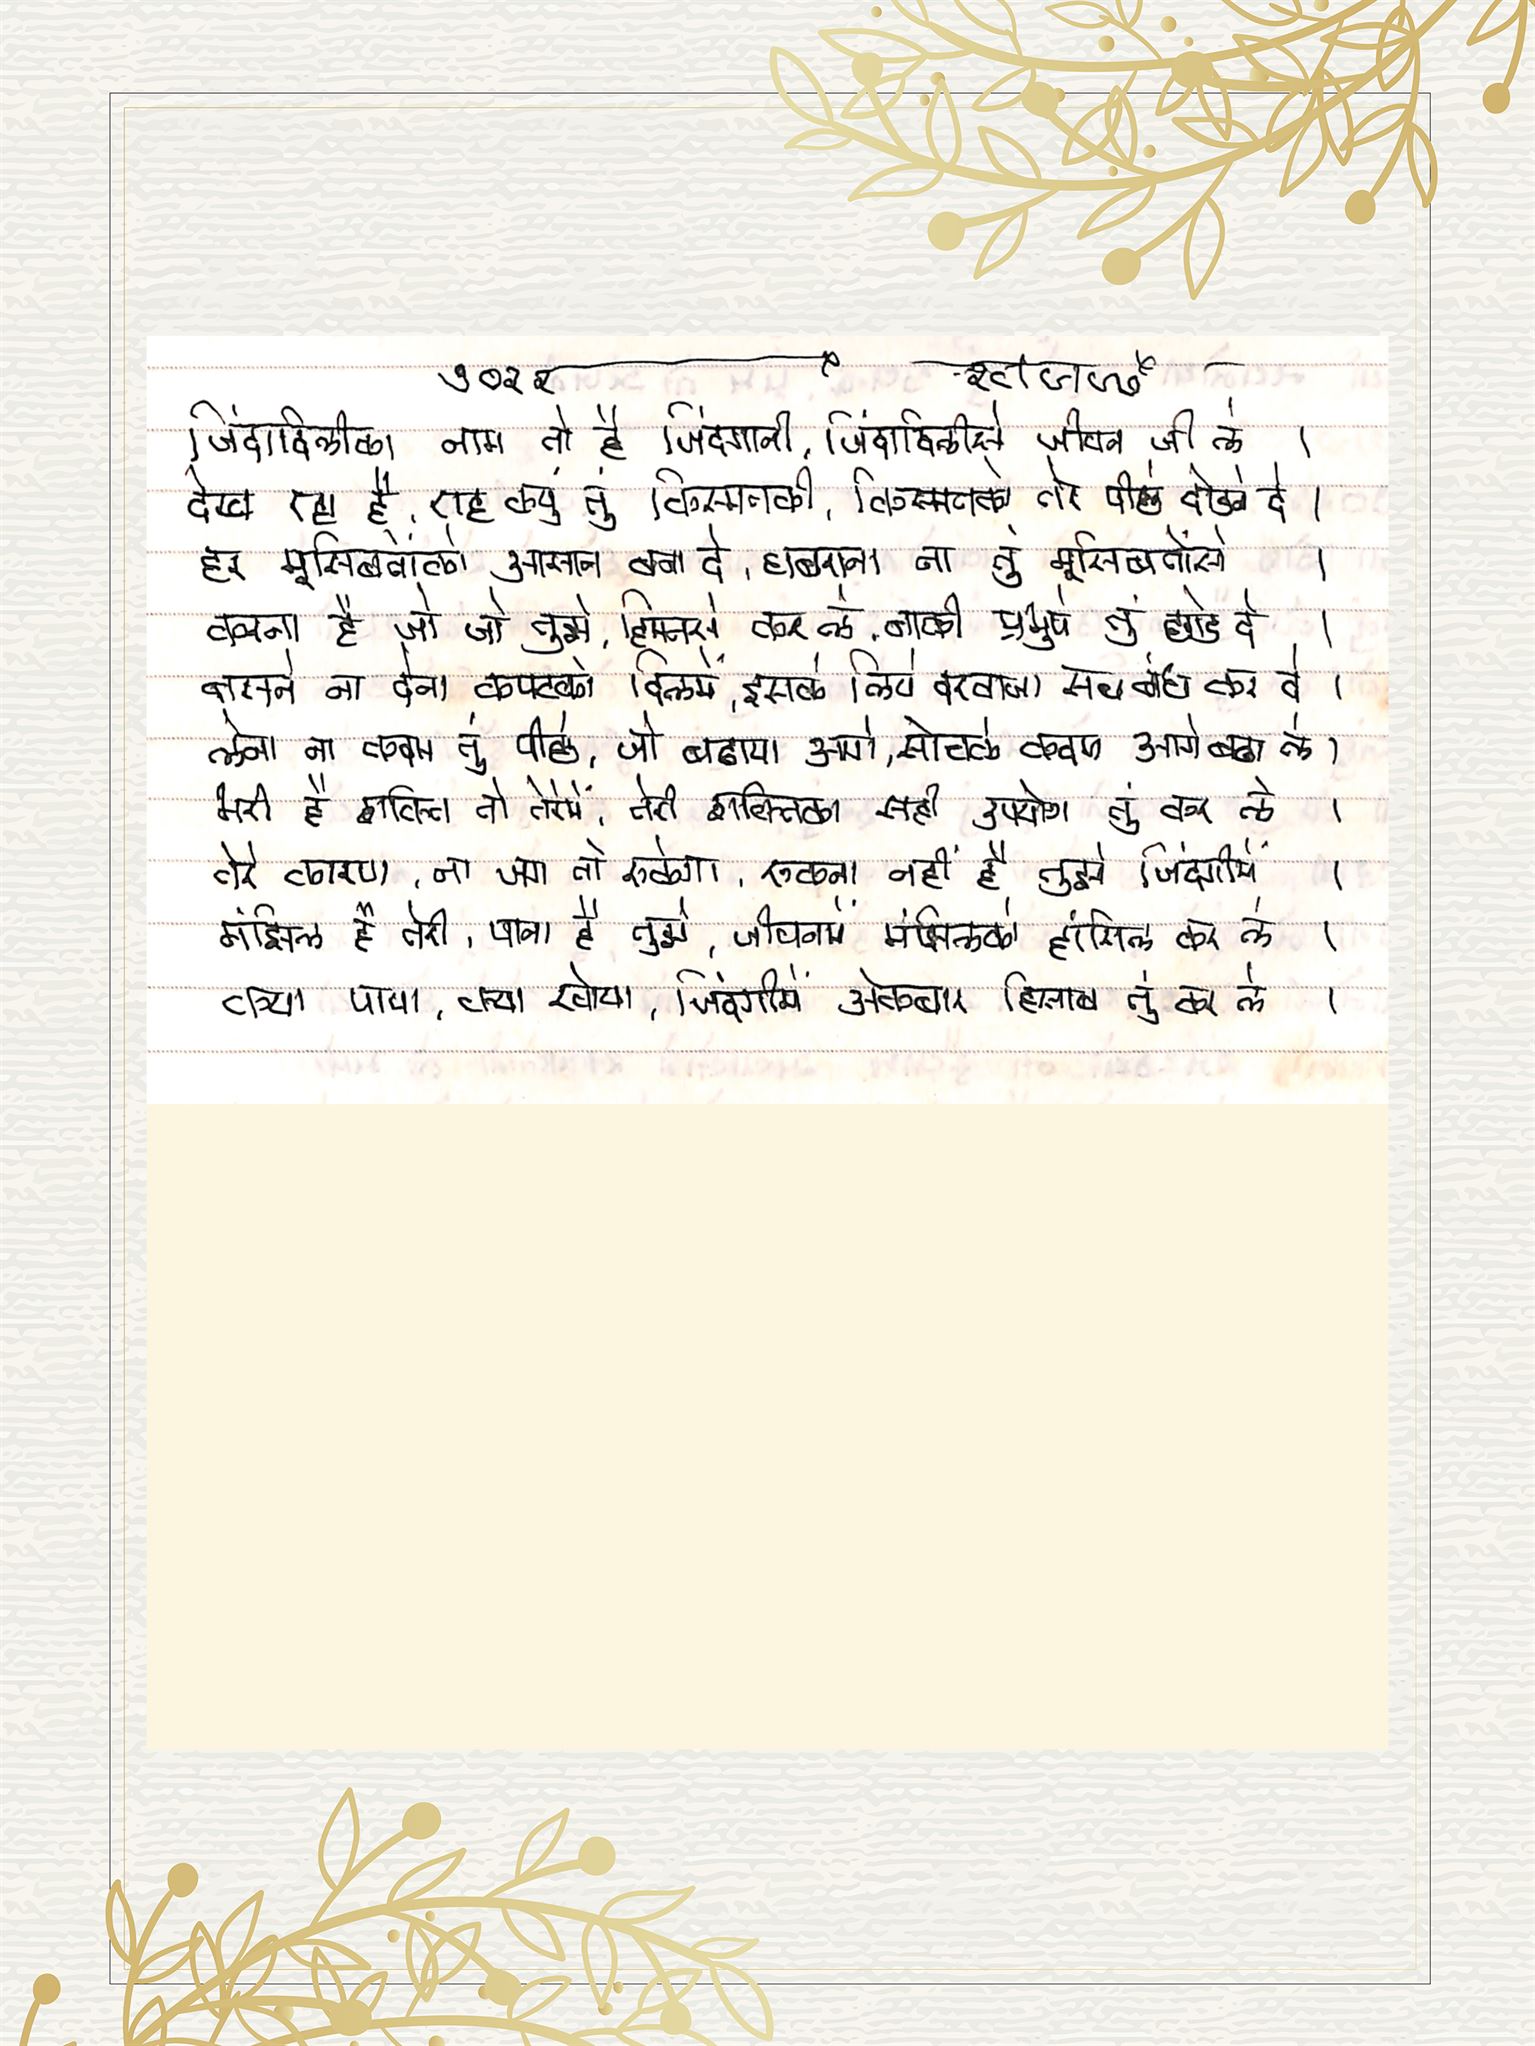 ७०२२
जिंदादिलीका नाम तो है जिंदगानी, जिंदादिलीसे जीवन जी ले ।
देख रहा है, राह क्युं तुं किस्मतकी, किस्मतको तेरे पीछे दोडने दे ।
हर मूसिबतोंको आसान बना दे, घबराना ना तुं मूसिबतोंसे ।
करना है जो जो तुझे, हिंमतसे कर ले, बाकी प्रभुपे तुं छोड दे ।
बासने ना देना कपटको दिलमें, इसके लिये दरवाजा सब बंध कर दे ।
लेना ना कदम तुं पीछे, जो बढाया आगे, सोचके कदम आगे बढा ले ।
भरी है शक्ति तो तेरेमें, तेरी शक्तिका सही उपयोग तुं कर ले ।
तेरे कारण, ना जग तो रुकेगा, रुकना नहीं है तुझे जिंदगीमें ।
मंझिल है तेरी, पाना है तुझे, जीवनमें मंझिलको हांसिल कर ले ।
क्या पाया, क्या खोया, जिंदगीमें अेकबार हिसाब तुं कर ले ।